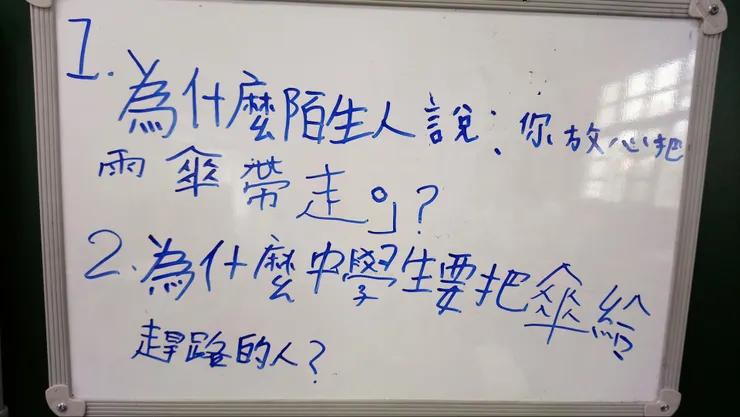 1. 為什麼陌生人說：你放心把
雨傘帶走。」?
2. 為什麼中學生要把傘給
趕路的人?